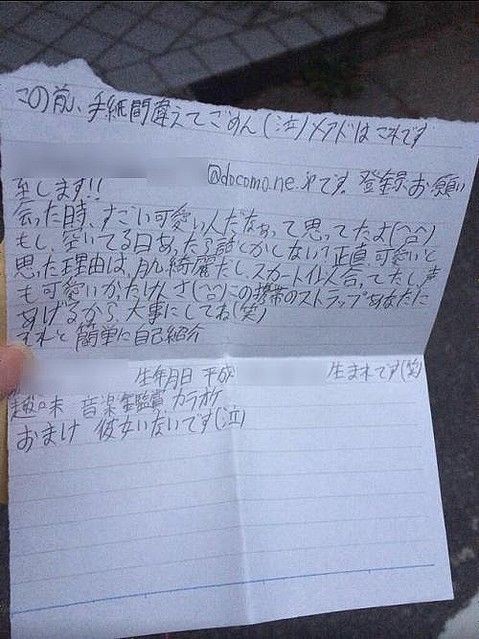 この前、手紙間違えてごめん(泣)メアドはこれです
@docomo.ne.jpです。登録お願い
至します!!
会った時、すごい可愛い人だなぁって思ってたよ(^^)
もし、空いてる日あったら話しかしない?正直可愛いと
思った理由は、肌綺麗だし、スカート似合ってたし、声
も可愛いかったけんさ(^^)この携帯のストラップあなたに
あげるから大事にしてね(笑)
それと簡単に自己紹介
生年月日 平成 生まれです(笑)
趣味 音楽鑑賞 カラオケ
おまけ 彼女いないです(泣)